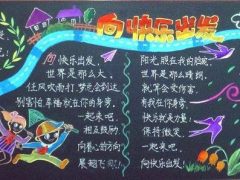 向快乐出发
向快乐出发,
世界是那么大。
任风吹雨打,梦也会到达
别害怕幸福就在你的身旁。
一起来吧,
相互鼓励,
向着心的方向
展翅飞翔!
阳光,照在我的脸庞,
世界是那么晴朗,
就算会受伤害。
有我在你身旁。
快乐就是力量。
保持微笑。
一起来吧。
向快乐出发!